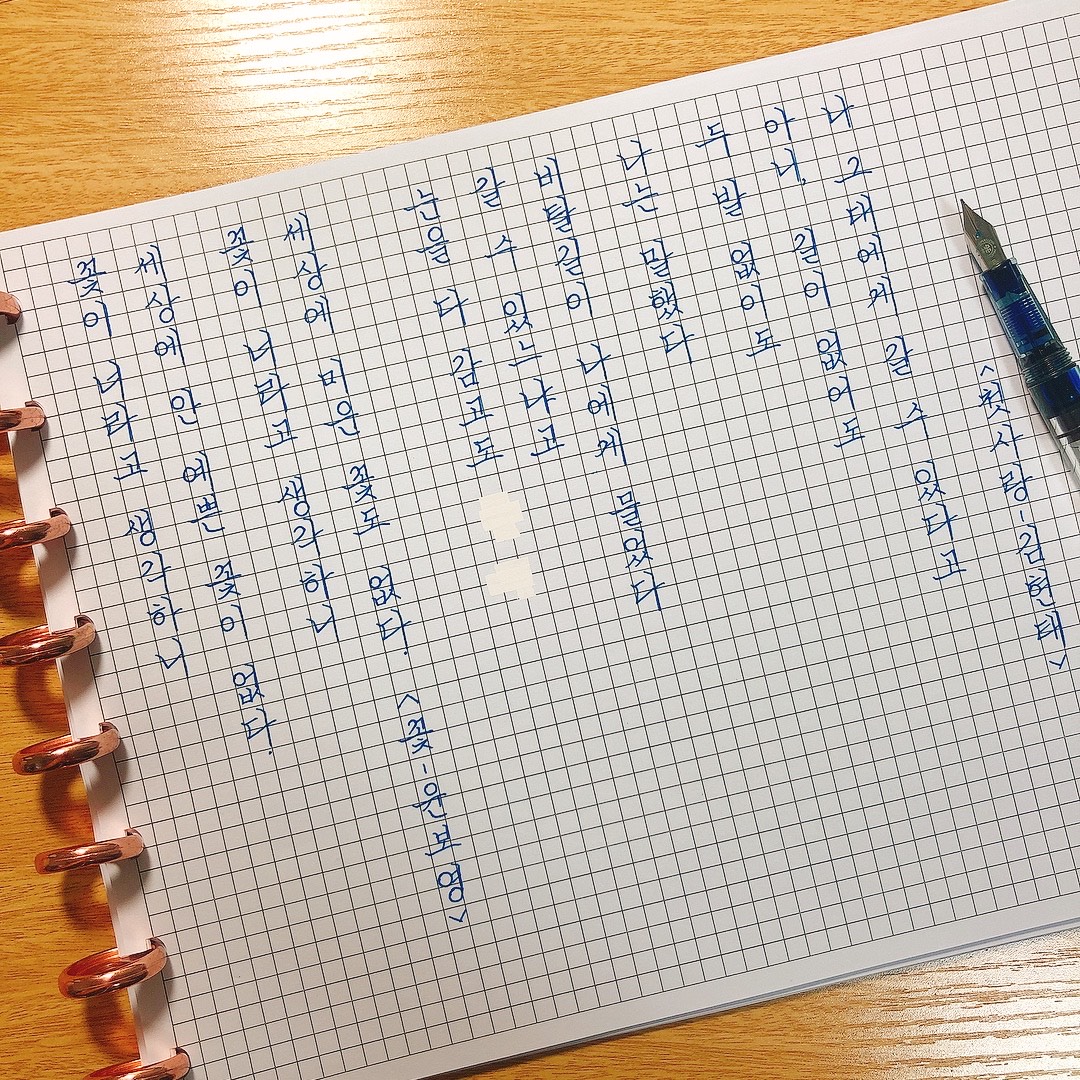 꽃이 너라고 생각하니
세상에 안 예쁜 꽃이 없다.
꽃이 너라고 생각하니
세상에 미운 꽃도 없다.
<꽃-윤보영>
눈을 다 감고도
갈 수 있느냐고
비탈길이 나에게 물었다
나는 말했다
두 발 없이도
아니, 길이 없어도
나 그대에게 갈 수 있다고
<첫사랑-김현태>